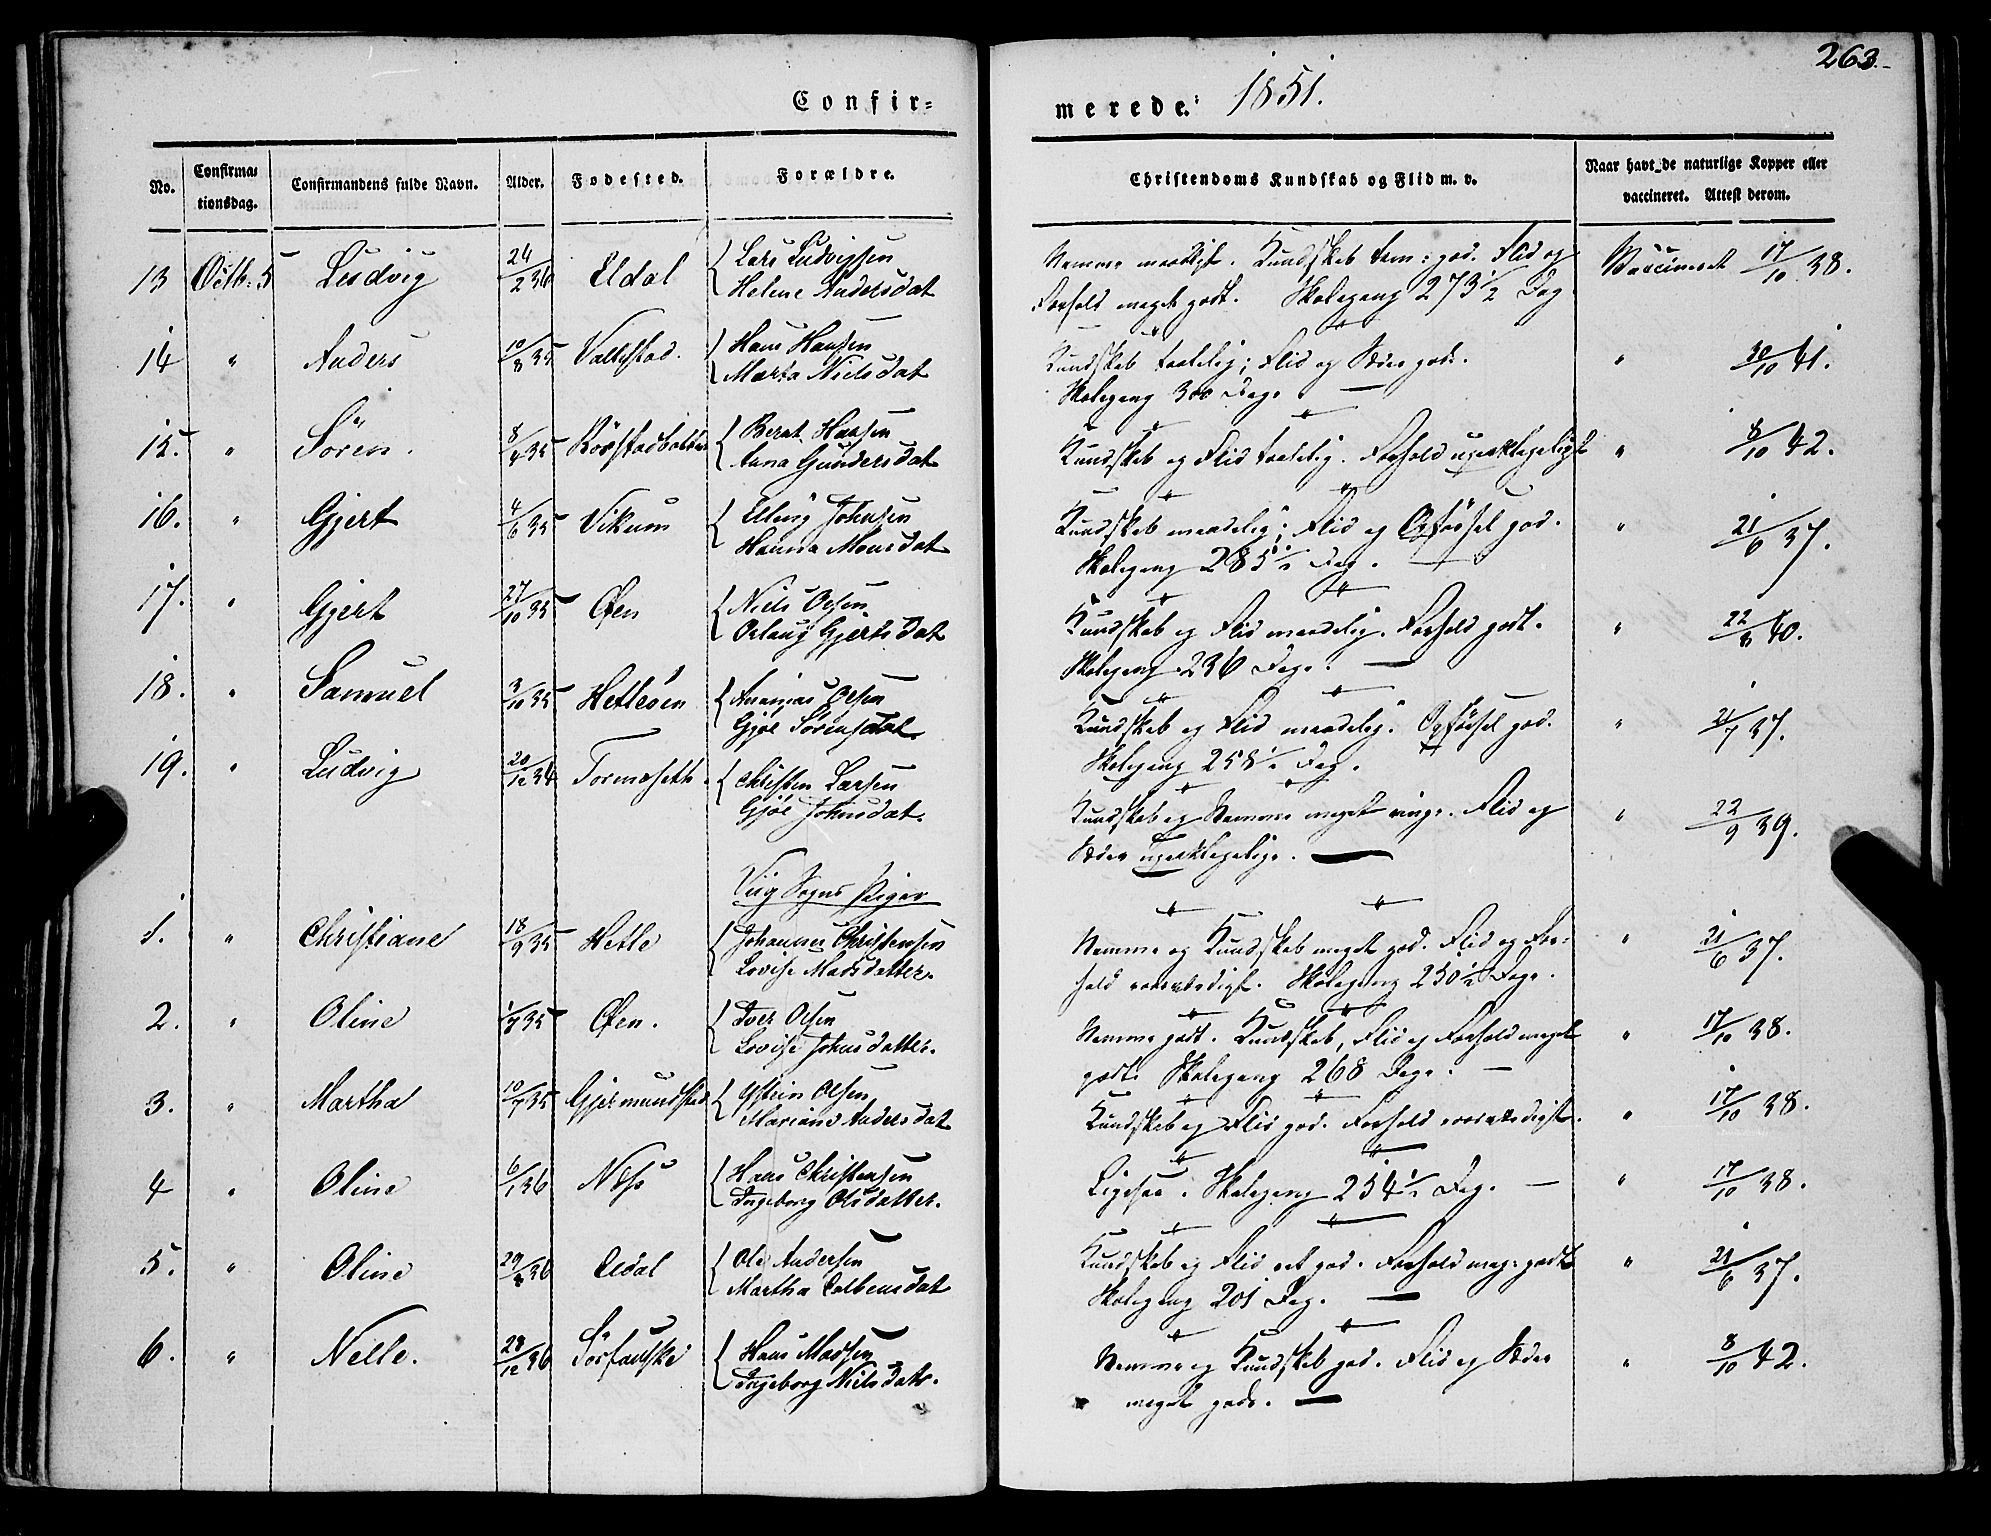 263.
Confir=
merede. 1851.
No. Confirma= tionsdag. Confirmandens fulde Navn. Alder. Fodested. Forældre. Christendoms Kundskab og Flid m. v. Naar havt de naturlige Kopper eller vaccineret. Attest derom.
13 Octb: 5 Ludvig 24/2 36 Eldal { Lars Ludvigsen
Helene Andersdat
Nemme maadeligt. Kundskab tem: god. Flid og
Forhold meget godt. Skolegang 273 1/2 Dag
Vaccineret 17/10 38.
14 " Anders 10/8 35 Valkestad. { Hans Hansen
Marta Nielsdat
Kundskab taalelig; Flid og Sæder gode.
Skolegang 300 Dage
" 30/10 41.
15. " Sören. 8/4 35 { Bernt Hansen
Anna Gundersdat
Kundskab og Flid taalelig. Forhold upaaklageligt
" 8/10 42.
16. " Gjert 4/6 35 Vikum { Elling Johnsen
Hanna Monsdat
Kundskab maadelig; Flid og Opførsel god.
Skolegang 285 1/2 Dag.
" 21/6 37.
17. " Gjert 27/10 35 Øen { Niels Olsen
Oelaug Gjertsdat
Kundskab og Flid maadelig. Forhold godt.
Skolegang 236 Dage.
" 22/8 40.
18. " Samuel 3/10 35 Hetleöen { Ananias Olsen
Gjøe Sørensdat.
Kundskab og Flid maadelig. Opførsel god.
Skolegang 258 1/2 Dag.
" 21/7 37.
19. " Ludvig 20/12 34 Tormoseth. { Christen Larsen
Gjøe Johnsdat.
Kundskab og Nemme meget ringe. Flid og
Sæder upaaklagelige.
" 22/9 39.
Viig Sogns Piger
1. " Christiane 18/9 35 Hetle { Johannes Christensen
Lovise Madsdatter.
Nemme og Kundskab meget god. Flid og For=
hold roesværdigt. Skolegang 250 1/2 Dage.
" 21/6 37.
2. " Oline 1/7 35 Øen. { Iver Olsen
Lovise Johnsdatter.
Nemme godt. Kundskab, Flid og Forhold meget
godt. Skolegang 268 Dage.
" 17/10 38.
3. " Martha 10/7 35 Gjermundstad { Østein Olsen
Mariane Andersdat
Kundskab og Flid god. Forhold roesværdigt.
" 17/10 38.
4 " Oline 6/1 36 Næss { Hans Christensen
Ingeborg Olsdatter.
Ligesaa. Skolegang 254 1/2 Dag.
" 17/10 38.
5. " Oline 36 Eldal { Ole Andersen
Martha Colbensdat
Kundskab og Flid ret god. Forhold meg: godt
Skolegang 201 Dag.
" 21/6 37.
6. " Nelle. 36 Sörfauske { Hans Madsen
Ingeborg Nielsdatr.
Nemme og Kundskab god. Flid og Sæder
meget gode.
" 8/10 42.